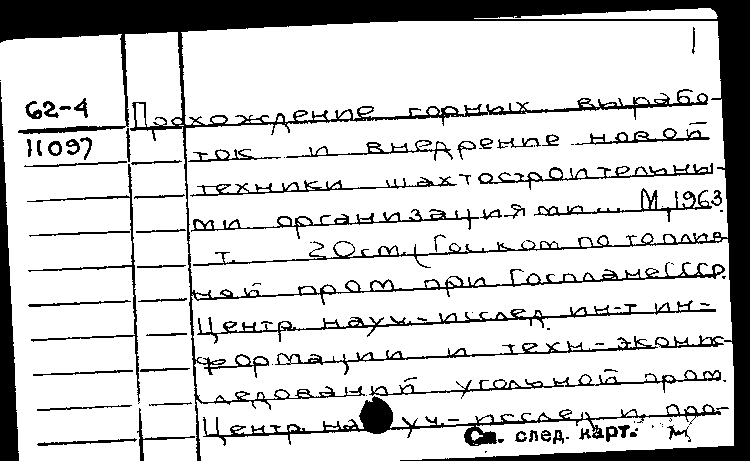 1
62-4 Прохождение горных вырабо-
11097 ток и внедрение новой
техники шахтостроительны-
ми организациями... М, 1963
т. 20см. (Гос. ком по топлив
ной пром. при Госплане СССР.
Центр. науч.-исслед. ин-т ин-
формации и техн.-экон. ис-
следований угольной пром.
Центр. науч.-исслед. и про-
См. след. карт.